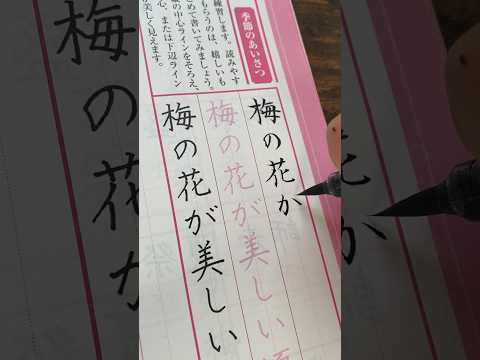 季節のあいさつ
練習します。読みやす
もらうのは、嬉しいも
めて書いてみましょう。
の中心ラインをそろえ、
心、または下辺ライン
美しく見えます。
梅の花か
梅の花が美しい
梅の花が美しい